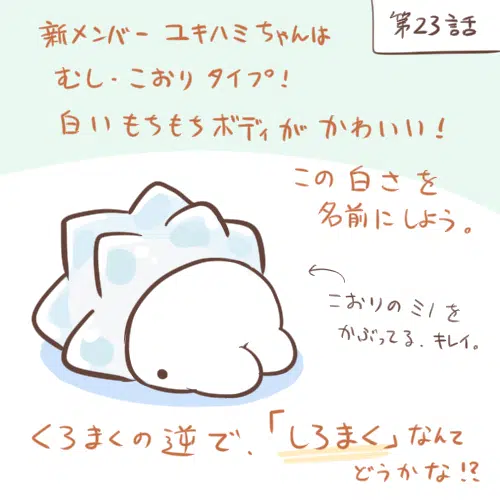 第23話
新メンバー ユキハミちゃんは
むし・こおり タイプ!
白い もちもち ボディが かわいい!
この 白さを
名前に しよう。
こおりの ミノを
かぶってる。キレイ。
くろまくの 逆で、「しろまく」なんて
どうかな!?